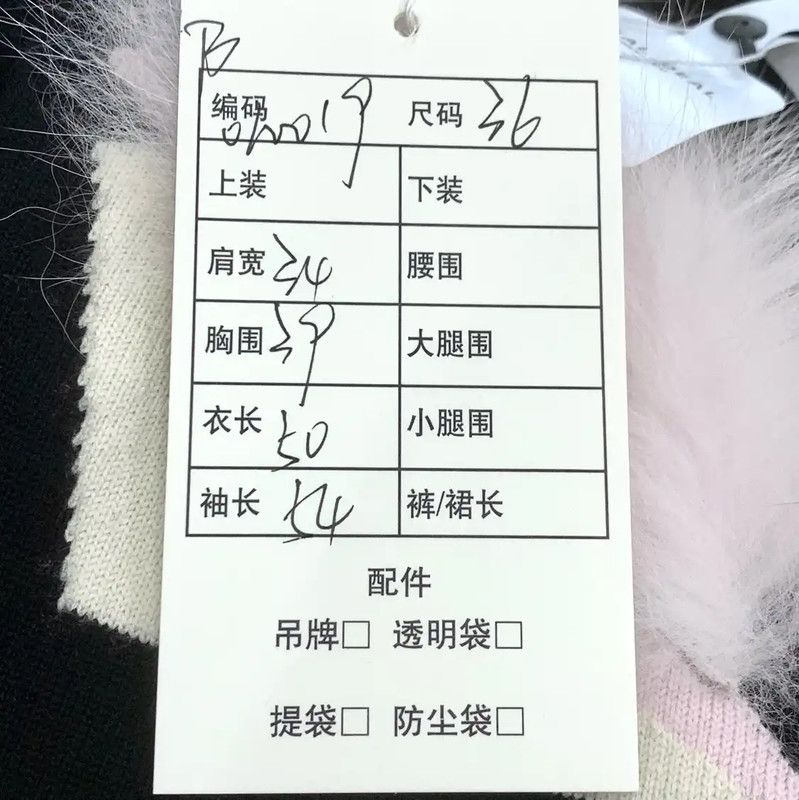 B
编码 尺码 36
上装 下装
肩宽 34 腰围
胸围 39 大腿围
衣长 50 小腿围
袖长 54 裤/裙长
配件
吊牌□ 透明袋□
提袋□ 防尘袋□